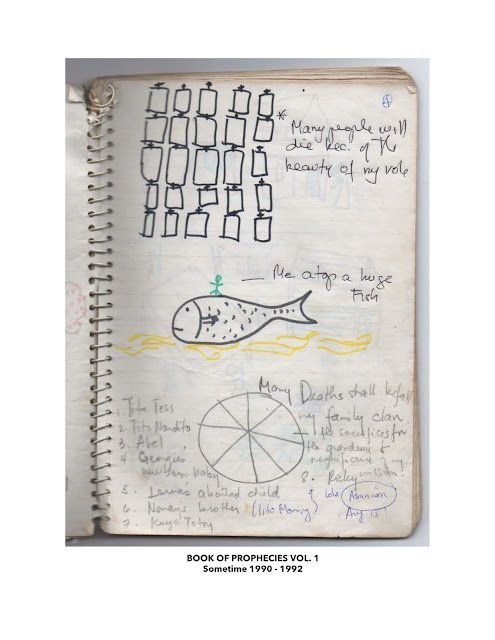 ④
* Many people will
die bec. of the
beauty of my role
— Me atop a huge
Fish
Many Deaths shall befall
my family clan
— the sacrifices for
the grandeur &
magnificence of my
mission.
1. Tita Tess
2. Tito Nandito
3. Abel
4. Georgies
newborn baby
5. aborted child
6. Nanays brother (Tito Manny)
7. Kuya Totoy
8. Ricky
9. Lola Asuncion
Aug. 15
BOOK OF PROPHECIES VOL. 1
Sometime 1990 - 1992